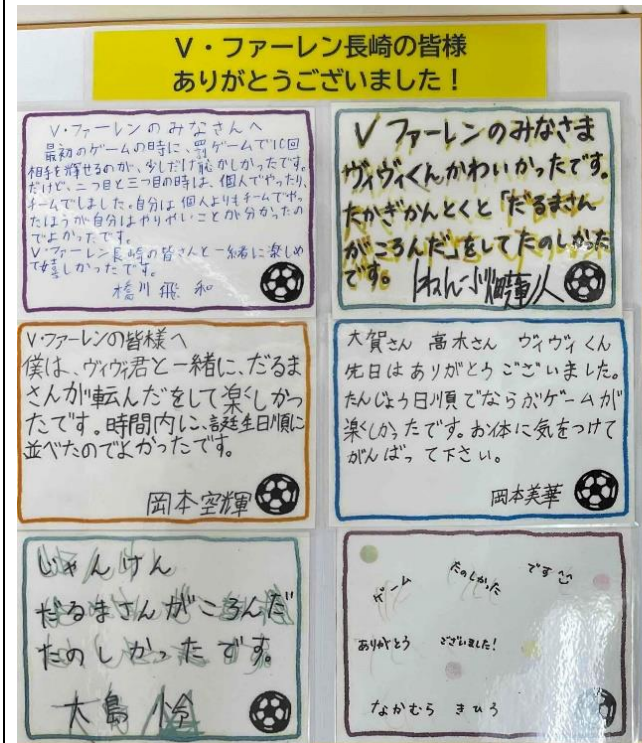 V・ファーレン長崎の皆様
ありがとうございました！
V・ファーレンのみなさんへ
最初のゲームの時に、罰ゲームで10回
相手を褒せるのが、少しだけ恥かしかったです。
だけど、二つ目と三つ目の時は、個人でやったり、
チームでしました。自分は個人よりもチームでやっ
たほうが自分はやりやいことが分かったの
でよかったです。
V・ファーレン長崎の皆さんと一緒に楽しめ
て嬉しかったです。
橋川飛和
Vファーレンのみなさま
ヴィヴィくんかわいかったです。
たかぎかんとくと「だるまさん
がころんだ」をしてたのしかった
です。
V・ファーレンの皆様へ
僕は、ヴィヴィ君と一緒に、だるま
さんが転んだをして楽しかっ
たです。時間内に、誕生日順に
並べたのでよかったです。
岡本空輝
大賀さん 高木さん ヴィヴィくん
先日はありがとうございました。
たんじょう日順でならぶゲームが
楽しかったです。お体に気をつけて
がんばって下さい。
岡本美華
じゃんけん
だるまさんがころんだ
たのしかったです。
大島
ゲーム たのしかった です
ありがとう ございました!
なかむら きひろ